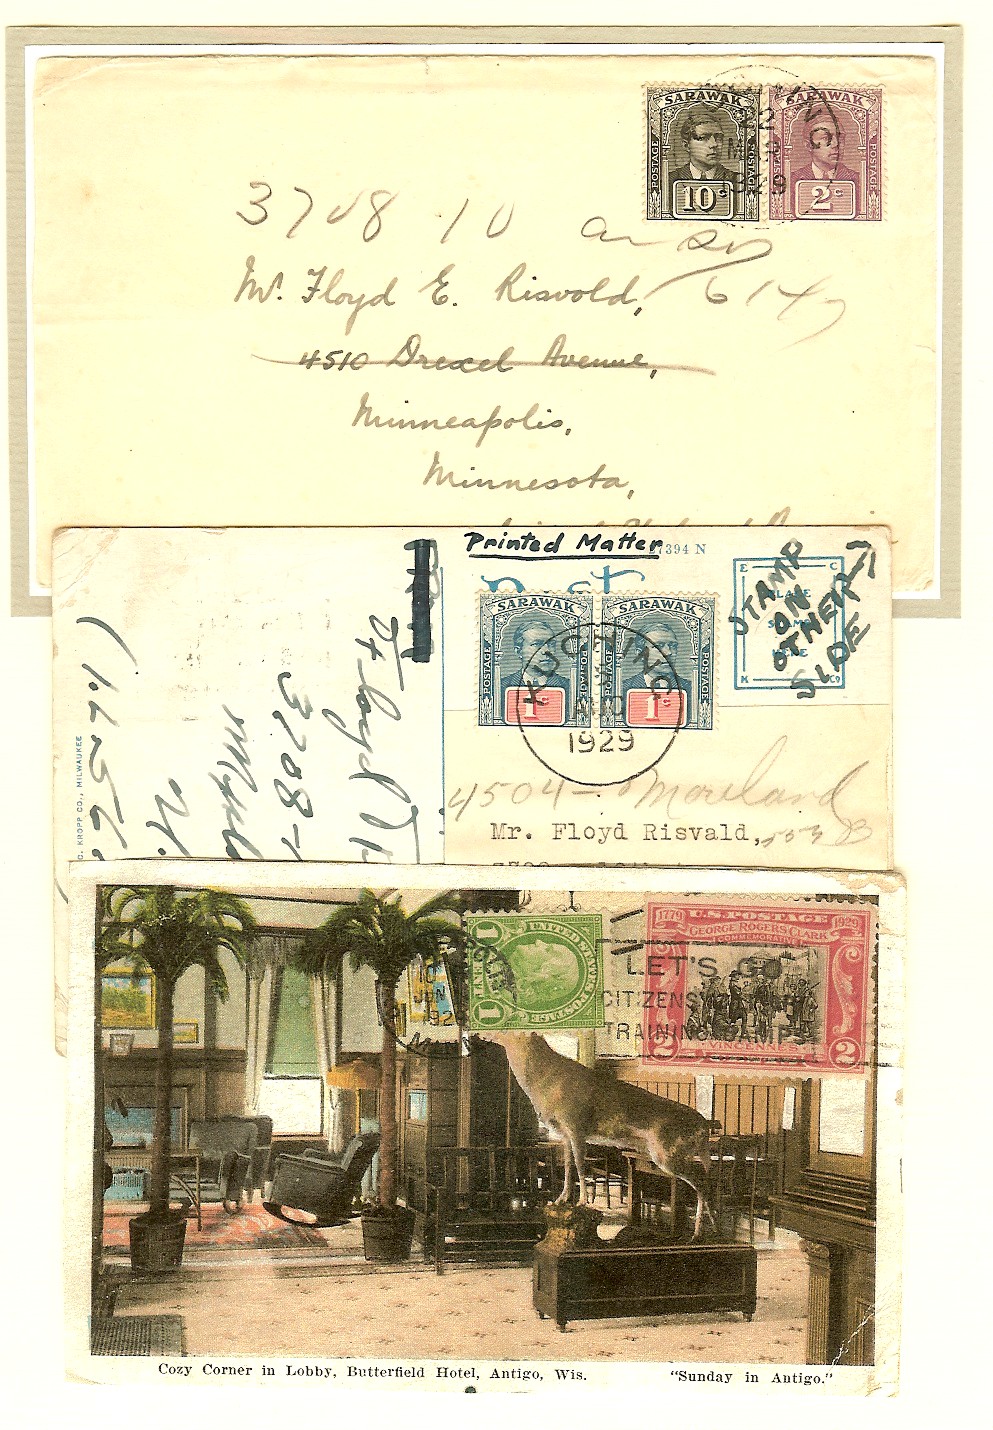 SARAWAK SARAWAK
POSTAGE POSTAGE POSTAGE POSTAGE
10c 2c
22
1929
3708 10
Mr. Floyd E. Risvold,
4510 Drexel Avenue,
Minneapolis,
Minnesota,
Printed Matter
7394 N
STAMP
ON
OTHER
SIDE
SARAWAK SARAWAK
POSTAGE POSTAGE
1c 1c
KUCHING
AUG
1929
4504 - Moreland
Mr. Floyd Risvald,
Floyd
3708
KROPP CO., MILWAUKEE
UNITED STATES POSTAGE
1 1
1779 U.S. POSTAGE 1929
GEORGE ROGERS CLARK
COMMEMORATIVE
2 2
10
JUN
1929
MINN
LET'S GO
CITIZENS
TRAINING CAMP
Cozy Corner in Lobby, Butterfield Hotel, Antigo, Wis. "Sunday in Antigo."